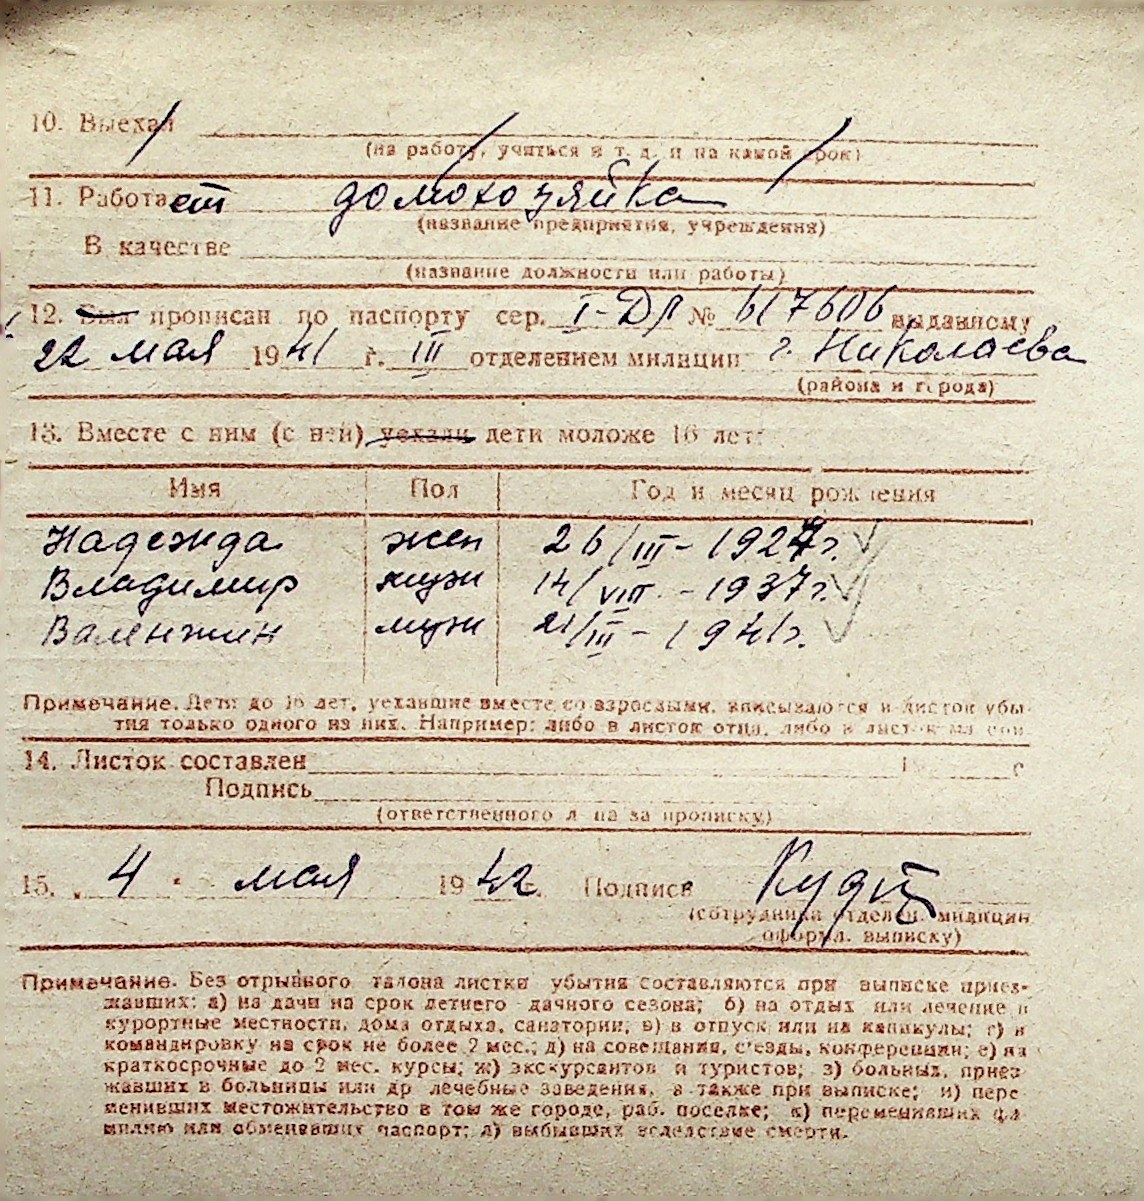 10. Выехал
(на работу, учиться и т. д. и на какой срок)
11. Работает домохозяйка
(название предприятия, учреждения)
В качестве
(название должности или работы)
12. Был прописан по паспорту сер. I-ДЛ № 617606 выданному
22 мая 1941 г. III отделением милиции г. Николаева
(района и города)
13. Вместе с ним (с ней) уехали дети моложе 16 лет:
Имя Пол Год и месяц рождения
Надежда жен 26/III - 1927г.
Владимир муж 14/VIII - 1937г.
Валентин муж 21/III - 1941г.
Примечание. Дети до 16 лет, уехавшие вместе со взрослыми, вписываются в листок убы-
тия только одного из них. Например: либо в листок отца, либо в листок матери
14. Листок составлен 19 г
Подпись
(ответственного лица за прописку)
15. „4" мая 1942. Подпись
(сотрудника отделен. милиции
оформ. выписку)
Примечание. Без отрывного талона листки убытия составляются при выписке приез-
жавших: а) на дачи на срок летнего дачного сезона; б) на отдых или лечение в
курортные местности, дома отдыха, санатории; в) в отпуск или на каникулы; г) в
командировку на срок не более 2 мес.; д) на совещания, с'езды, конференции; е) на
краткосрочные до 2 мес. курсы; ж) экскурсантов и туристов; з) больных, приез-
жавших в больницы или др лечебные заведения, а также при выписке; и) пере-
менивших местожительство в том же городе, раб. поселке; к) переменивших фа-
милию или обменявших паспорт; л) выбывших вследствие смерти.